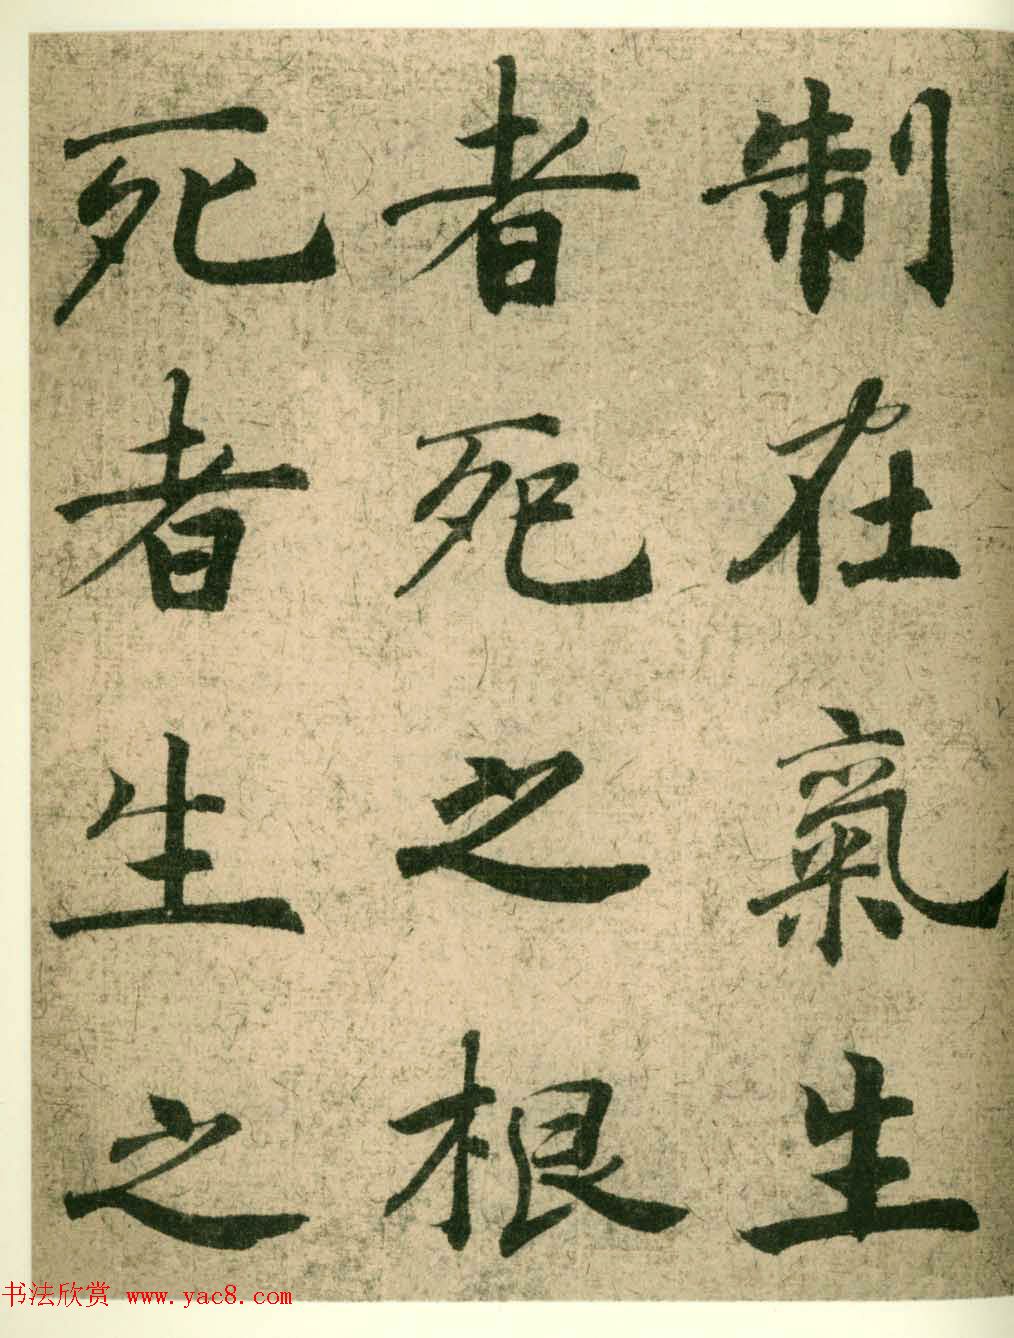 制在氣生
者死之根
死者生之
书法欣赏 www.yac8.com